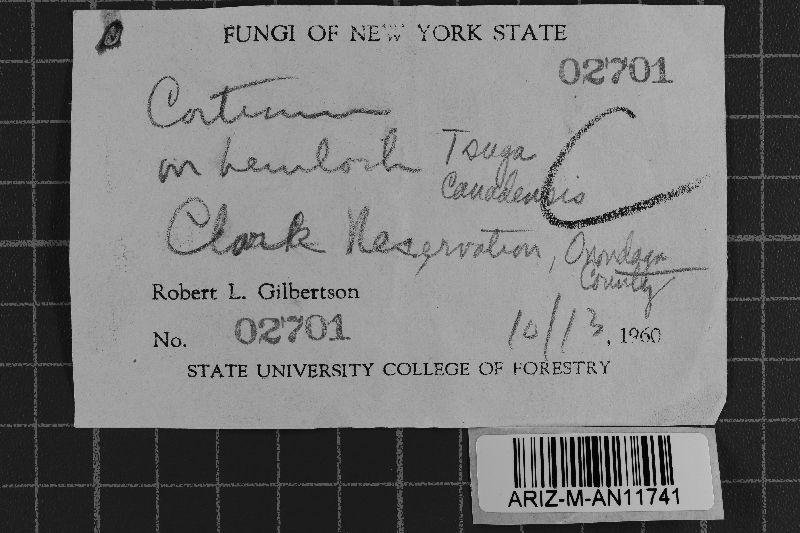 FUNGI OF NEW YORK STATE
02701
Corticium
on hemlock Tsuga
Canadensis
C
Clark Reservation, Onondaga
County
Robert L. Gilbertson
No. 02701 10/13, 1960
STATE UNIVERSITY COLLEGE OF FORESTRY
ARIZ-M-AN11741